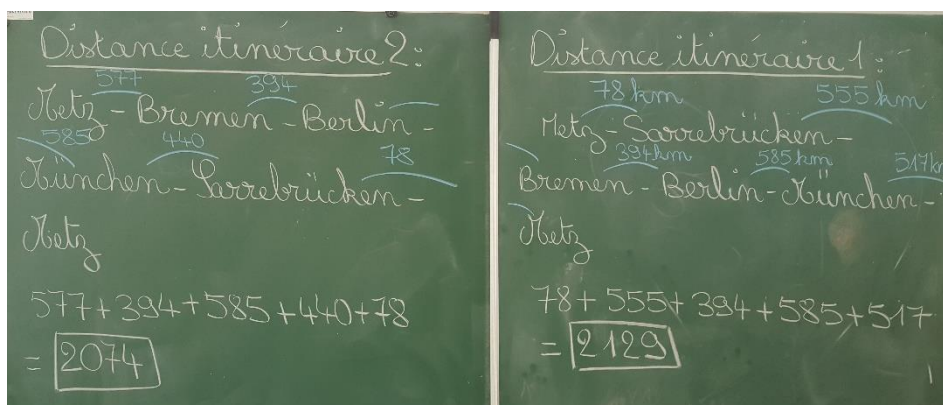 Distance itinéraire 2:
577 394
Metz - Bremen - Berlin -
585 440 78
München - Sarrebrücken -
Metz
577+394+585+440+78
= 2074
Distance itinéraire 1:
78 km 555 km
Metz - Sarrebrücken -
394km 585km 517k
Bremen - Berlin - München -
Metz
78+555+394+585+517
= 2129